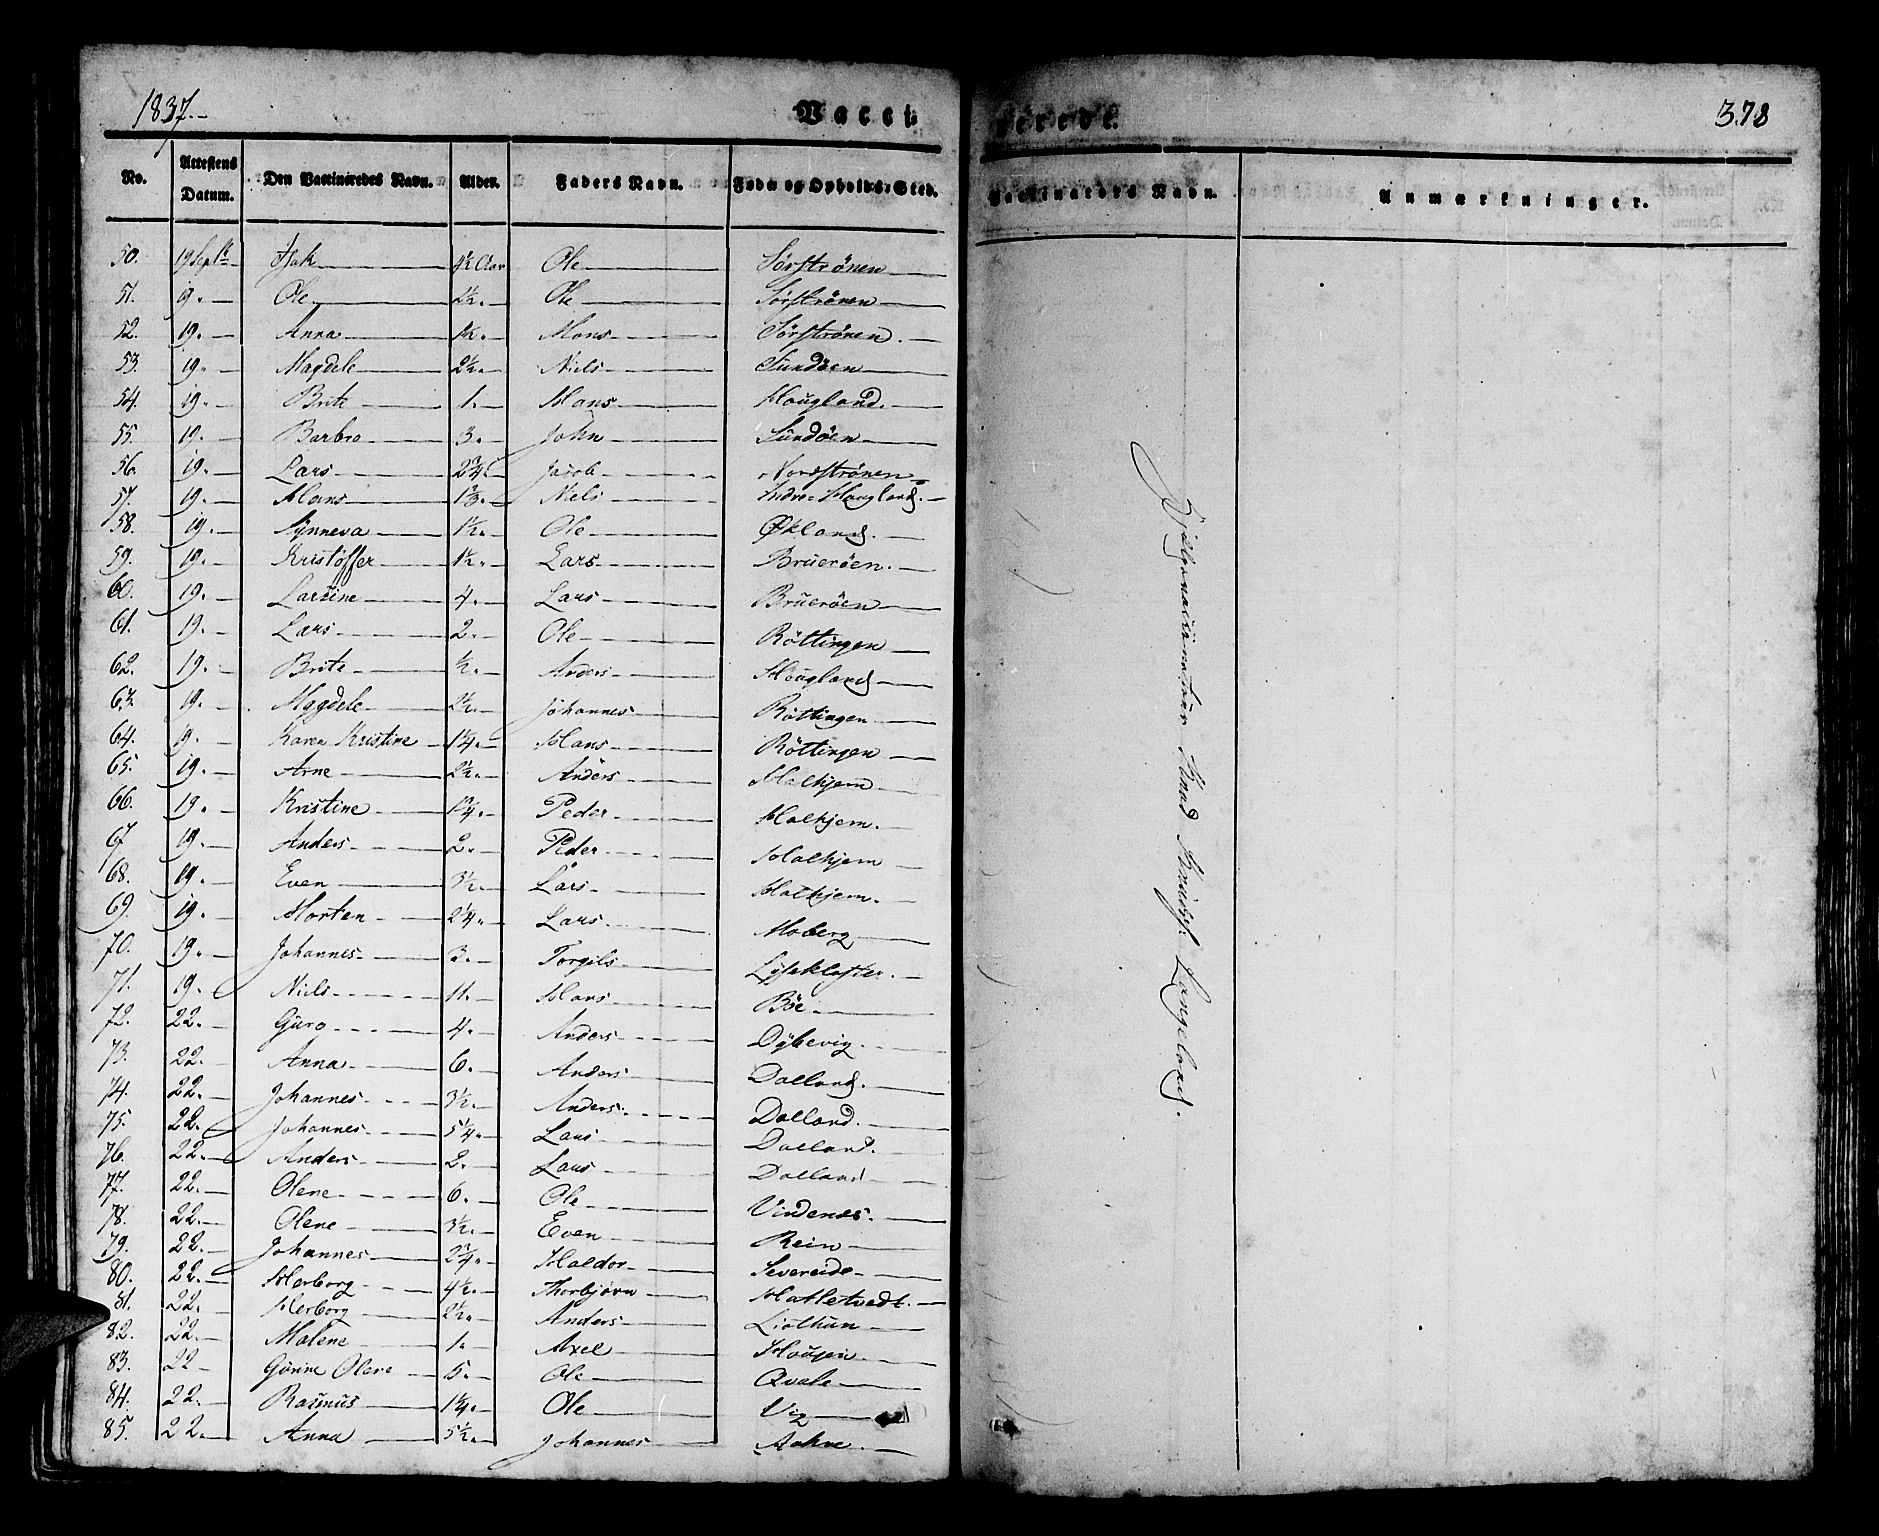 1837.
Vacci-
nerede.
378
No. Attestens Datum. Den Vaccineredes Navn. Alder. Faders Navn. Føde og Opholds-Sted. Vaccinateurs Navn. Anmærkninger.
50. 19 Septbr Isak 4½ Aar Ole Sörströnen
51. 19. Ole 2½. Ole Sörströnen
52. 19. Anna 1½. Mons Sörströnen.
53. 19. Magdele 2½. Niels Sundöen
54. 19. Brite 1. Hans Hougland.
55. 19. Barbro 3. John Sundöen
56. 19. Lars 2¾. Jacob Nordströnen
57. 19. Hans Niels Indre-Hougland.
58. 19. Synneva 1½. Ole Økland.
59. 19. Kristoffer 1½. Lars Brueröen.
60. 19. Larsine 4. Lars Brueröen
61. 19. Lars 2. Ole Röttingen
62. 19. Brite ½. Anders Hougland
63. 19. Magdele 2½. Johannes Röttingen
64. 19. Karen Kristine 1¼. Hans Röttingen
65. 19. Arne 2½. Anders Halhjem
66. 19. Kristine Peder Halhjem.
67. 19. Anders 2. Peder Halhjem
68. 19. Even 3½. Lars Halhjem.
69. 19. Morten 2¼. Lars Moberg
70. 19. Johannes 3. Torgils Lysekloster.
71. 19. Niels 11. Hans Böe
72. 22. Guro 4. Anders Dyhevig.
73. 22. Anna 6. Anders Dalland.
74. 22. Johannes 3½. Anders. Dalland.
75. 22. Johannes 5¼. Lars Dalland.
76. 22. Anders 2. Lars Dalland
77. 22. Olene 6. Ole Vindenes.
78. 22. Olene 3½. Even Rein
79. 22. Johannes 2¾. Haldor Severeide
80. 22. Herborg 4½. Thorbjörn Hatletvedt.
81. 22. Herborg 2½. Anders Liathun
82. 22. Malene 1. Axel Hougen
83. 22 Gunne Olene 5. Ole Qvale
84. 22. Rasmus 1¼. Ole Vig
85. 22. Anna 5½. Johannes
Hjelpevaccinateur Knud Langeland.